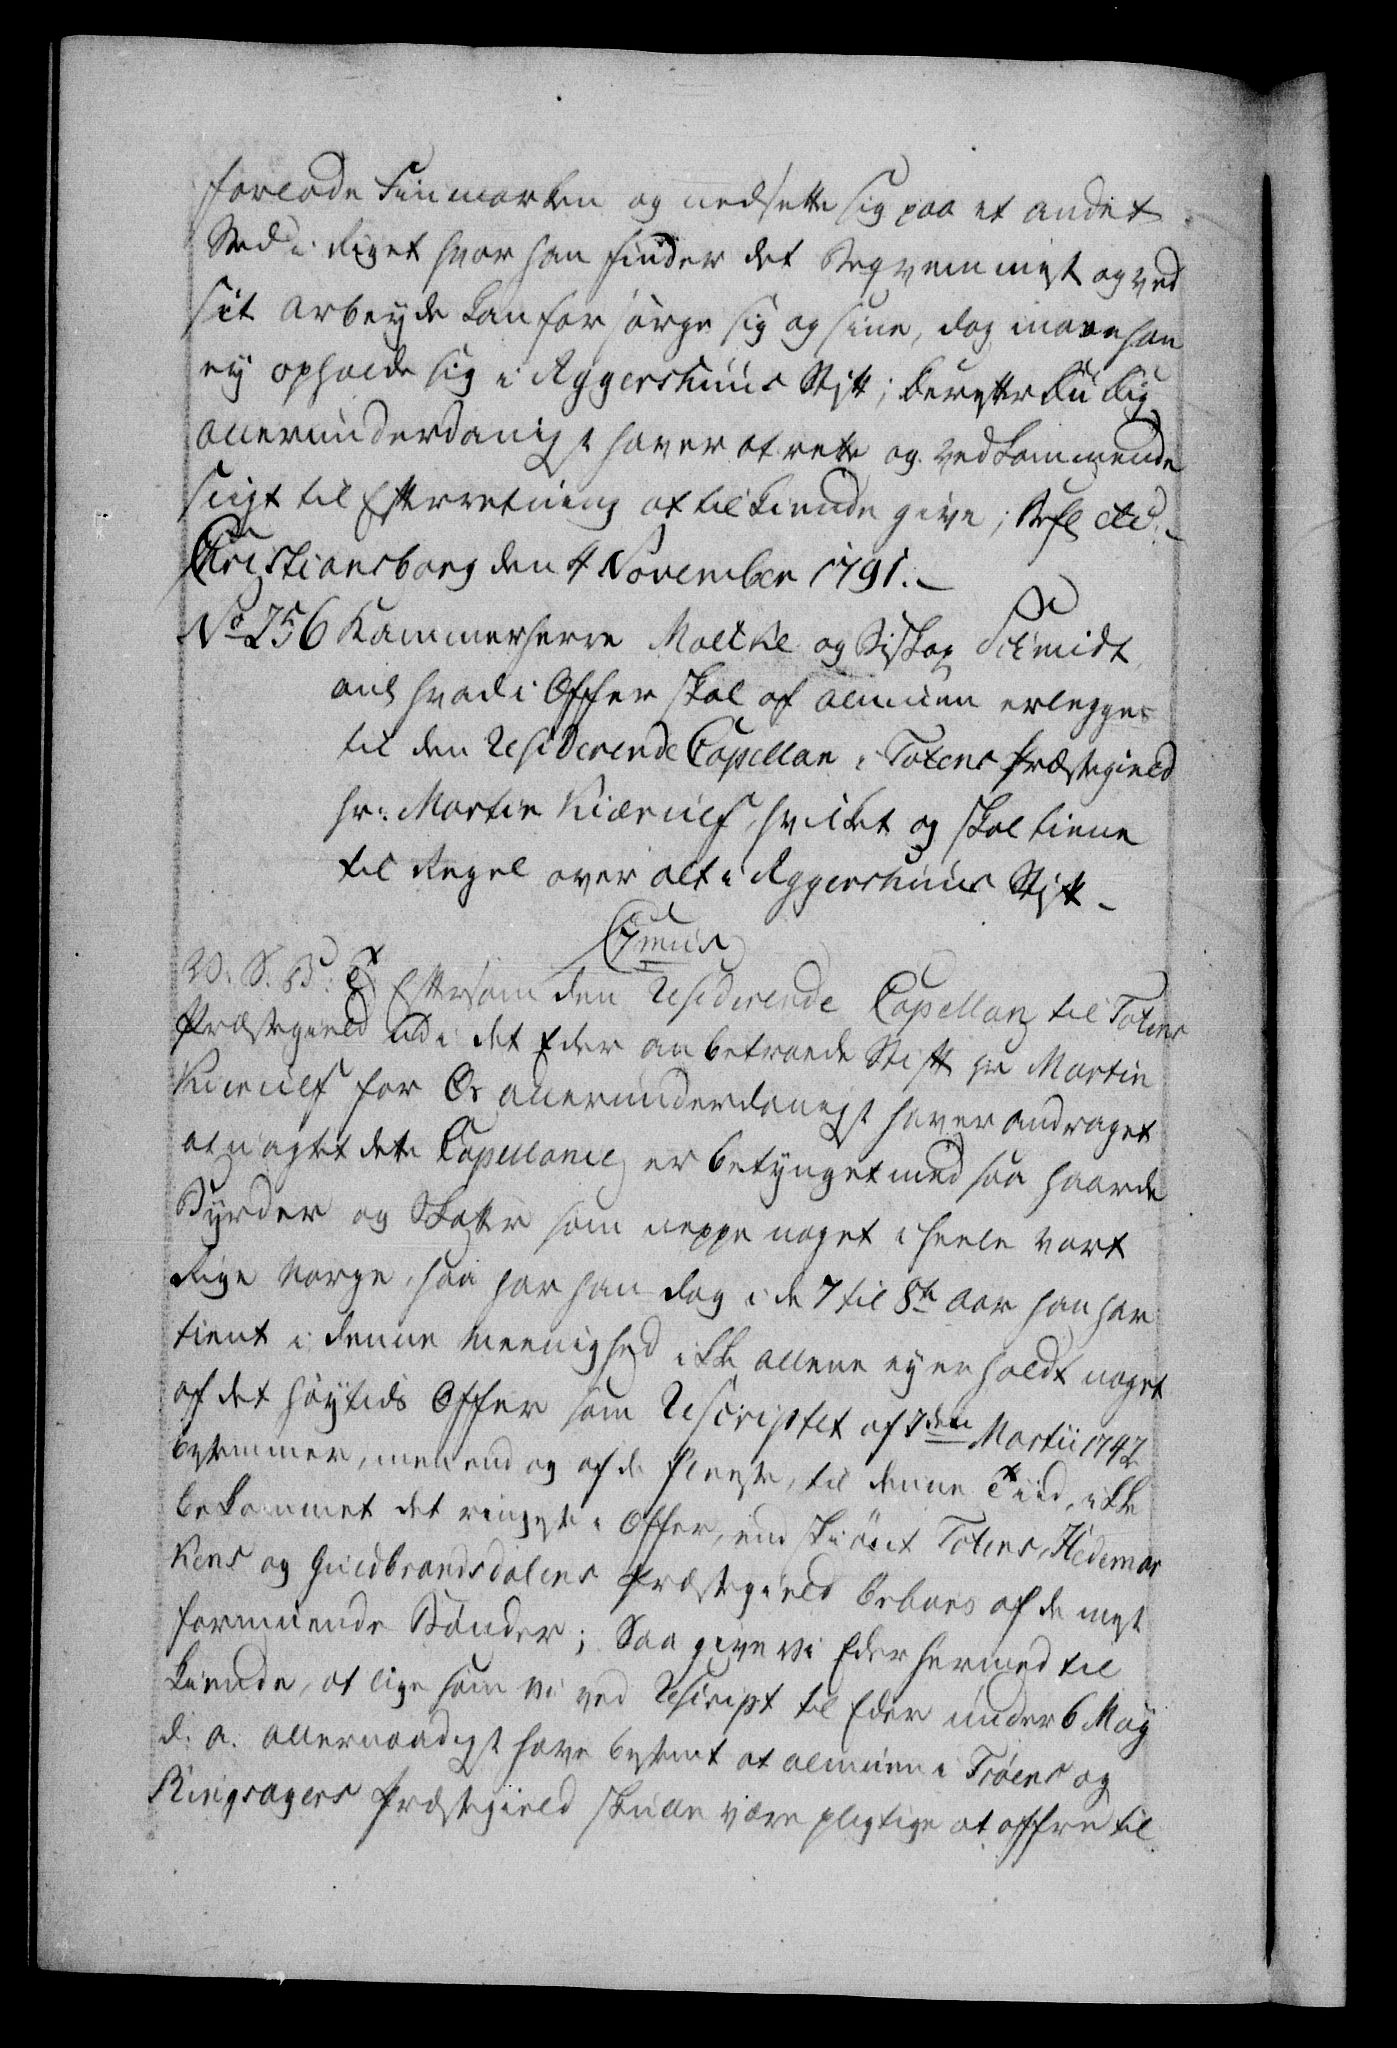 forlade Finmarken og nedsette sig paa et andet
Sted i Riget hvor han finder det Beqvemmest og ved
sit Arbeyde kan forsørge sig og sine, dog maae han
ey opholde sig i Aggershuus Stift; derefter Du Dig
allerunderdanigst haver at rette og vedkommende
sligt til Efterretning at tilkiende give; Befl etc.
Christiansborg den 4 November 1791.
No 256 Kammerherre Moltke og Biskop Schmidt
anl hvad i Offer skal af almuen erlegges
til den Residerende Capellan i Totens Præstegield
Hr: Martin Kierulf, hvilket og skal tiene
til Regel over alt i Aggershuus Stift
C7mus
V. S. B: T. Eftersom den Residerende Capellan til Totens
Præstegield udi det Eder anbetroede Stift Hr Martin
Kierulf for Os allerunderdanigst haver andraget
at uagtet dette Capellanie er betynget med saa haarde
Byrder og Skatter som neppe noget i heele Vort
Rige Norge, saa har han dog i de 7 til 8te Aar han har
tient i denne Meenighed ikke allene ey erholdt noget
af det høytids Offer som Rescriptet af 7den Martii 1742
bestemmer, men end og af de fleeste, til denne Tiid, ikke
bekommet det ringeste i Offer, end skiønt Totens, Hedemar
kens og Guldbrandsdalens Præstegield beboes af de mest
formuende Bønder; Saa give Vi Eder hermed til
kiende, at lige som Vi ved Rescript til Eder under 6 May
d: a: allernaadigst have bestemt at almuen i Froens og
Ringsagers Præstegield skulle være pligtige at offre til